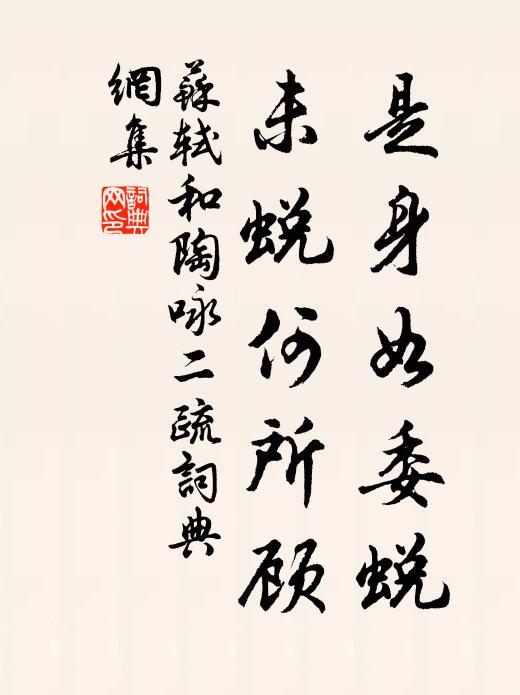 是身如委蜕
未蜕何所顾
蘇軾和陶咏二疏詞典
網集
詞典網印